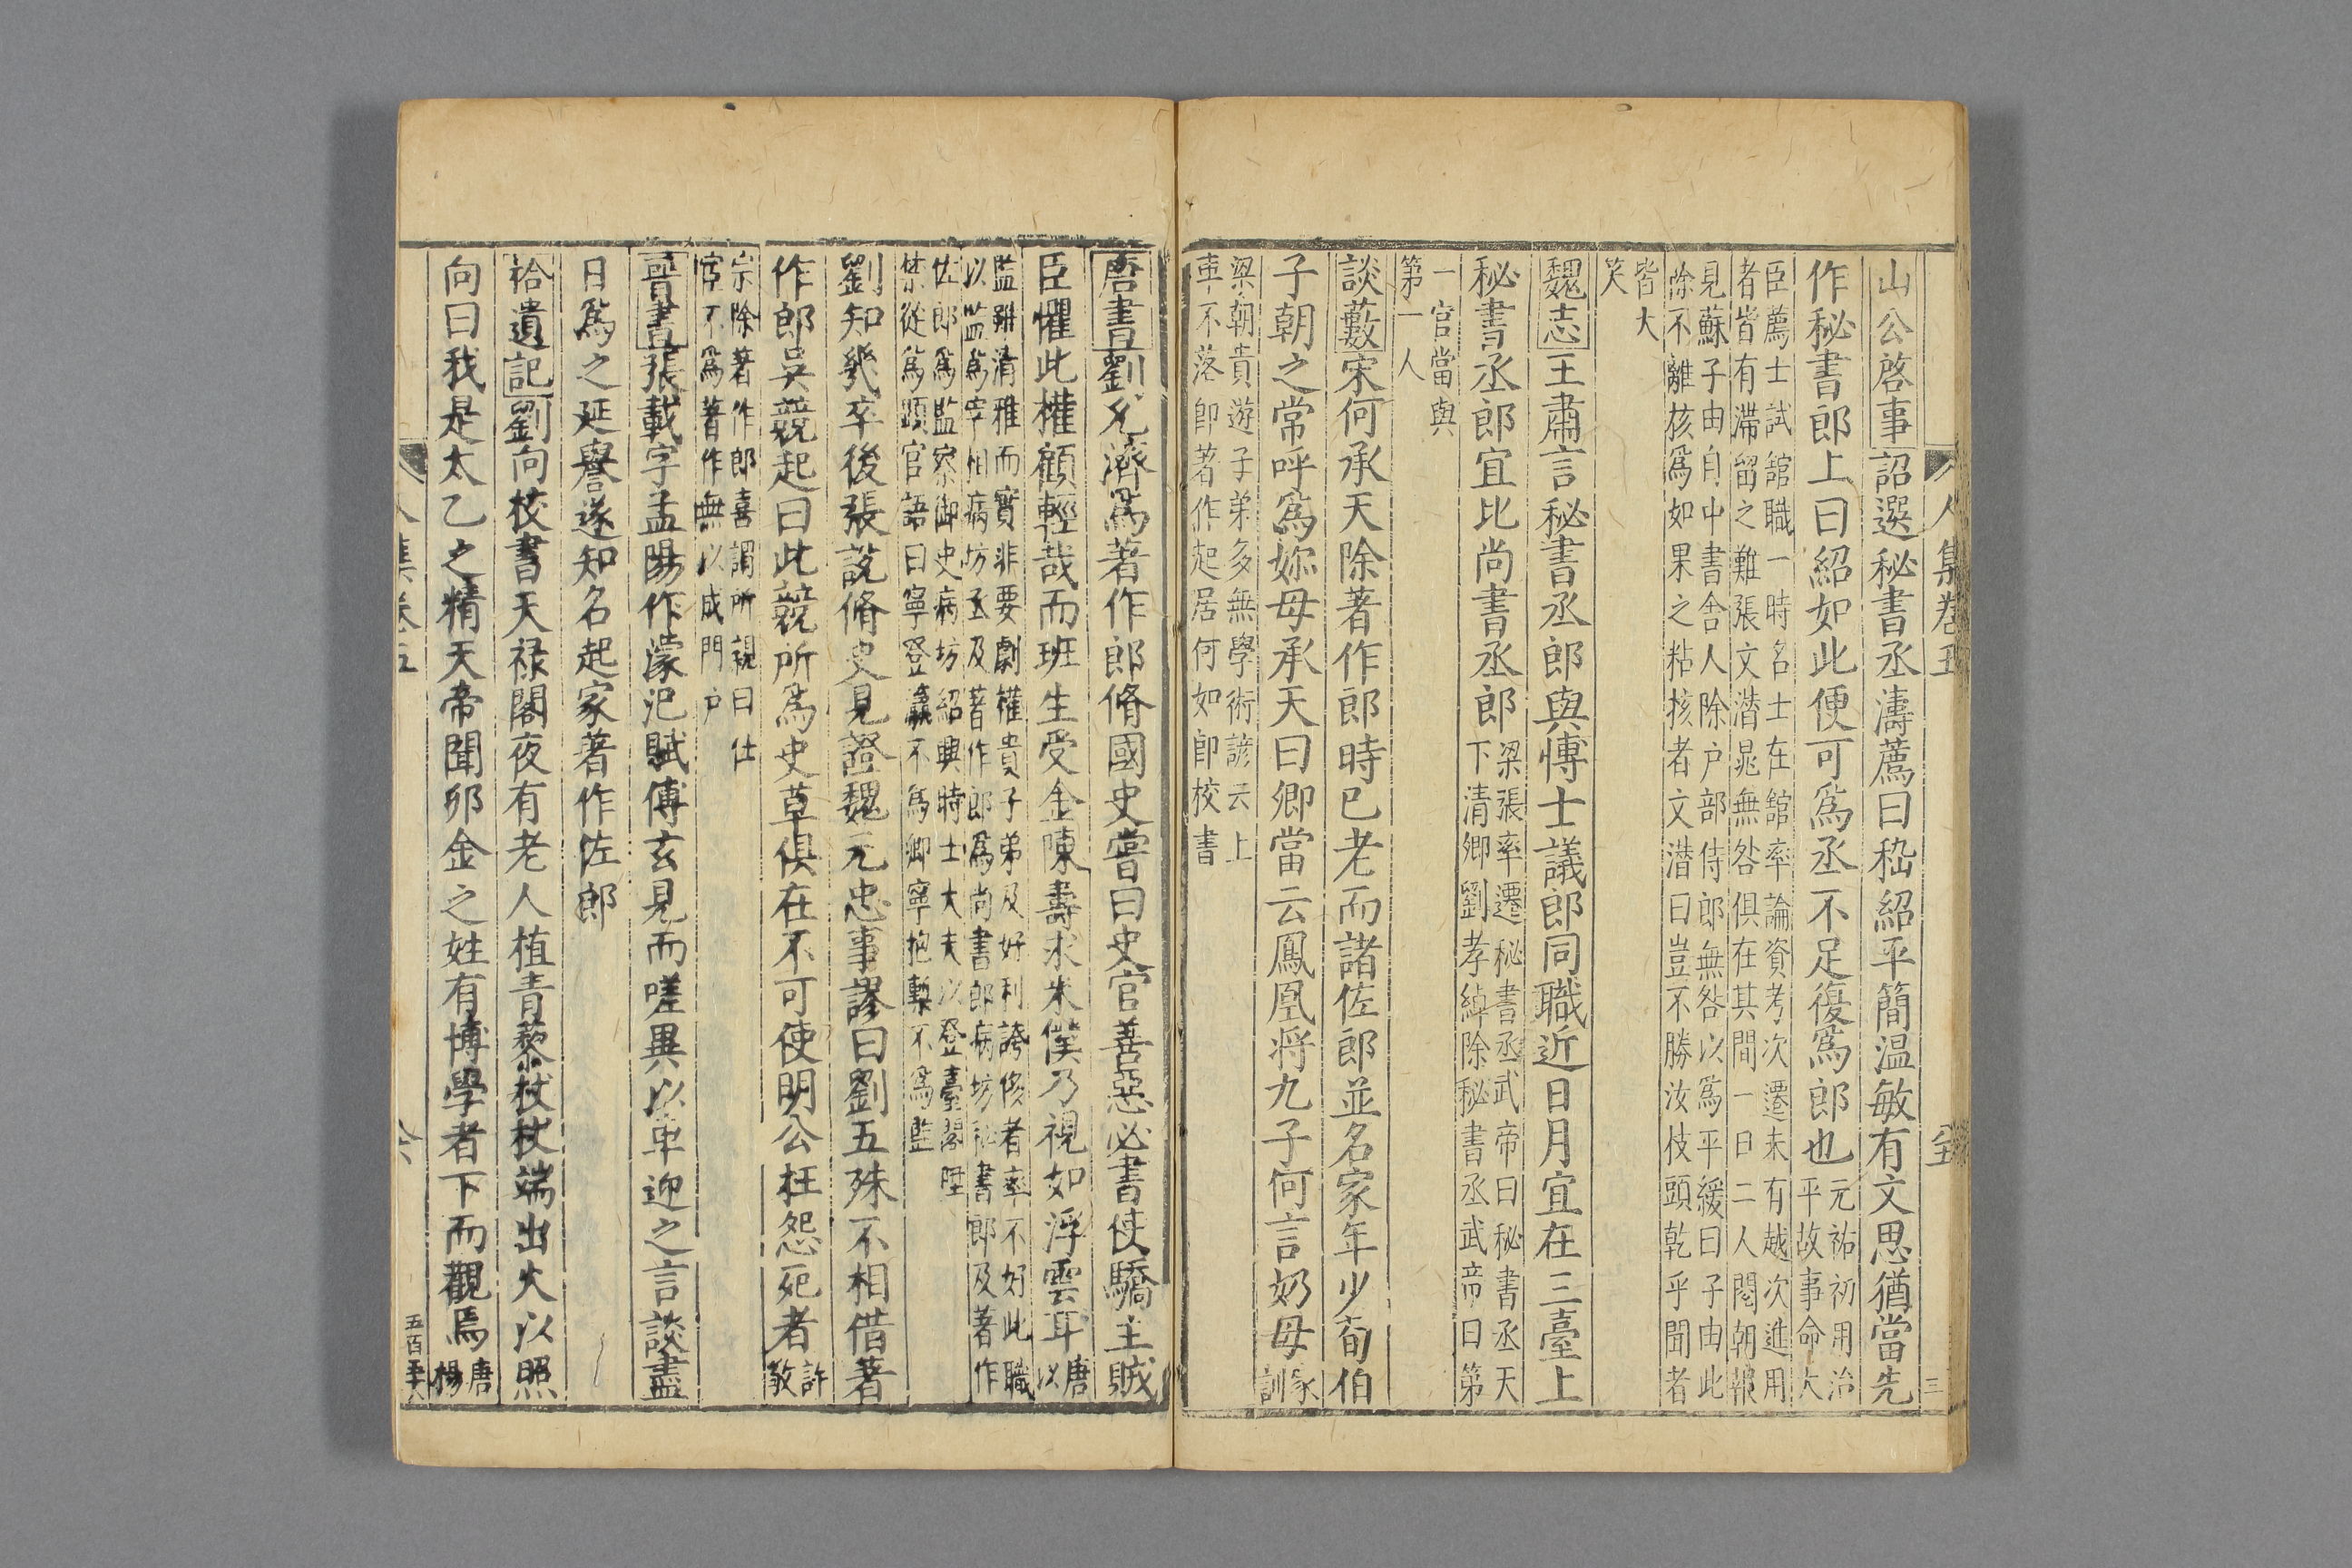 人集卷五
三
山公啓事詔選秘書丞濤薦曰嵇紹平簡温敏有文思猶當先
作秘書郎上曰紹如此便可爲丞不足復爲郎也元祐初用治
平故事命大
臣薦士試舘職一時名士在舘率論資考次遷未有越次進用
者皆有滯留之難張文潜晁無咎俱在其間一日二人閱朝報
見蘇子由自中書舍人除户部侍郎無咎以爲平緩曰子由此
除不離核爲如果之粘核者文潜曰豈不勝汝枝頭乾乎聞者
皆大
笑
魏志王肅言秘書丞郎與博士議郎同職近日月宜在三臺上
秘書丞郎宜比尚書丞郎梁張率遷秘書丞武帝曰秘書丞天
下清卿劉孝綽除秘書丞武帝曰第
一官當與
第一人
談藪宋何承天除著作郎時已老而諸佐郎並名家年少荀伯
子朝之常呼爲妳母承天曰卿當云鳳凰将九子何言奶母家
訓
梁朝貴遊子弟多無學術諺云上
車不落即著作起居何如即校書
唐書劉允濟爲著作郎脩國史嘗曰史官善惡必書使驕主賊
臣懼此權顧輕哉而班生受金陳壽求米僕乃視如浮雲耳唐
以
監雖清雅而實非要劇權貴子弟及好利誇侈者率不好此職
以監爲宰相病坊丞及著作郎爲尚書郎病坊秘書郎及著作
佐郎爲監察御史病坊紹興時士大夫以登臺閣陞
禁從爲顯官語曰寧登瀛不爲卿寧抱槧不爲監
劉知幾卒後張説脩史見證魏元忠事謬曰劉五殊不相借著
作郎吴競起曰此競所爲史草俱在不可使明公枉怨死者許
敬
宗除著作郎喜謂所親曰仕
宦不爲著作無以成門户
晋書張載字孟陽作濛汜賦傅玄見而嗟異以車迎之言談盡
日爲之延譽遂知名起家著作佐郎
拾遺記劉向校書天禄閣夜有老人植青藜杖杖端出火以照
向曰我是太乙之精天帝聞卯金之姓有博學者下而觀焉唐
楊
人集卷五